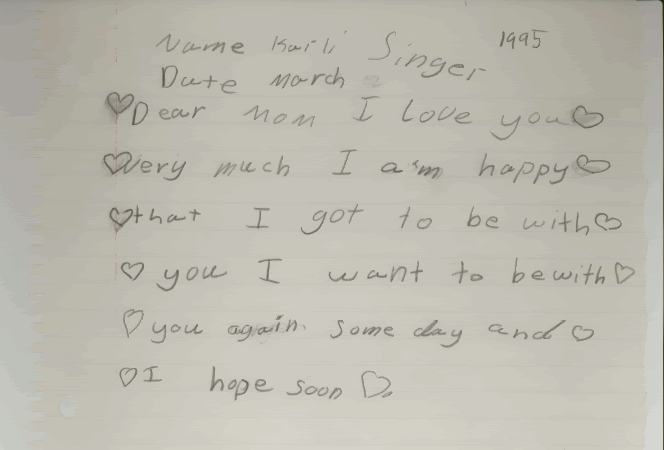 Name Karli Singer 1995
Date March
♡Dear Mom I love you♡
♡Very much I a'm happy♡
♡that I got to be with♡
♡you I want to be with♡
♡you again. some day and♡
♡I hope soon♡.